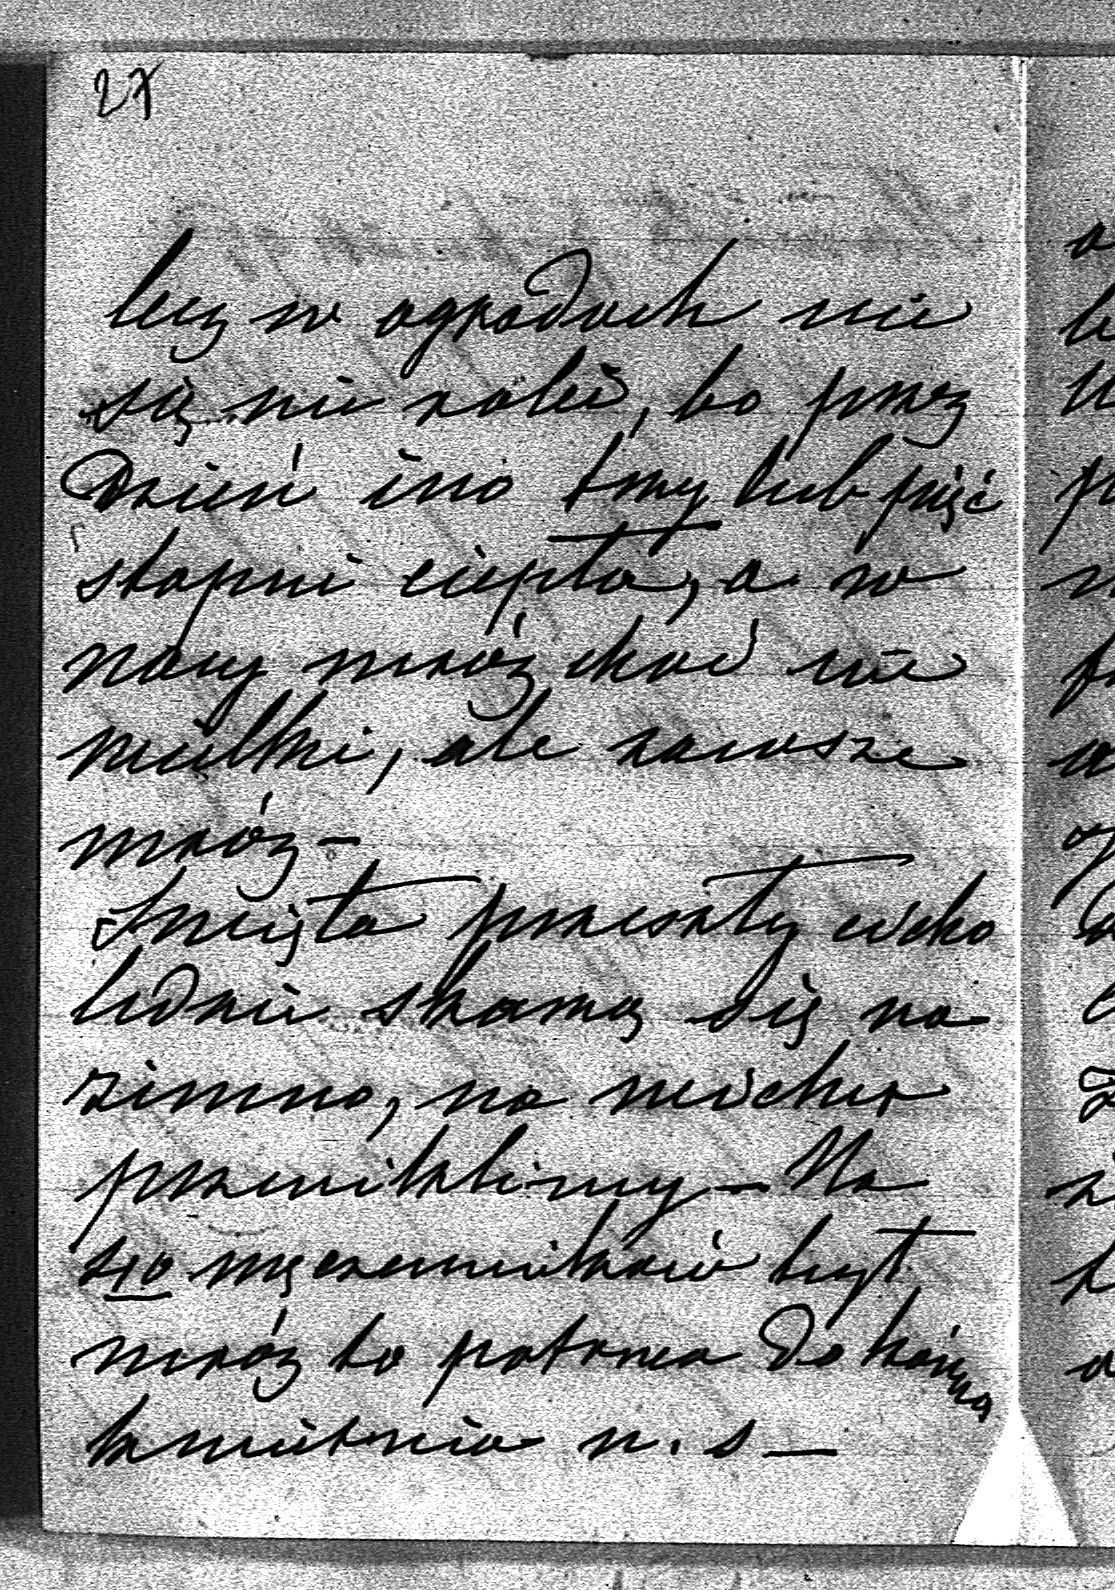 27
lecz w ogrodach nic
się nie robi, bo przez
dzień ino trzy lub pięć
stopni ciepła, a w
nocy mróz choć nie
wielki, ale zawsze
mróz —
Święta przeszły cicho
ludzie skarżą się na
zimno, na wicher
przenikliwy — Na
męczenników był
mróz to potrwa do końca
kwietnia n. s —